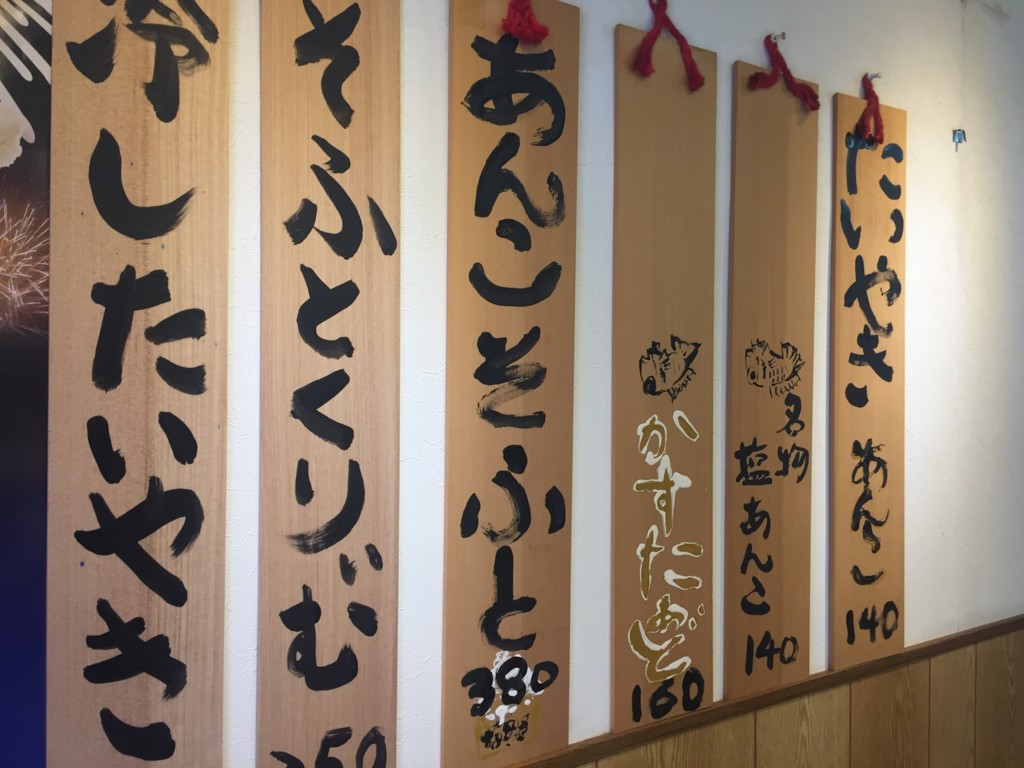 たいやき あんこ 140
名物
塩あんこ 140
かすたあど 160
あんこそふと 380
そふとくりぃむ 350
冷したいやき